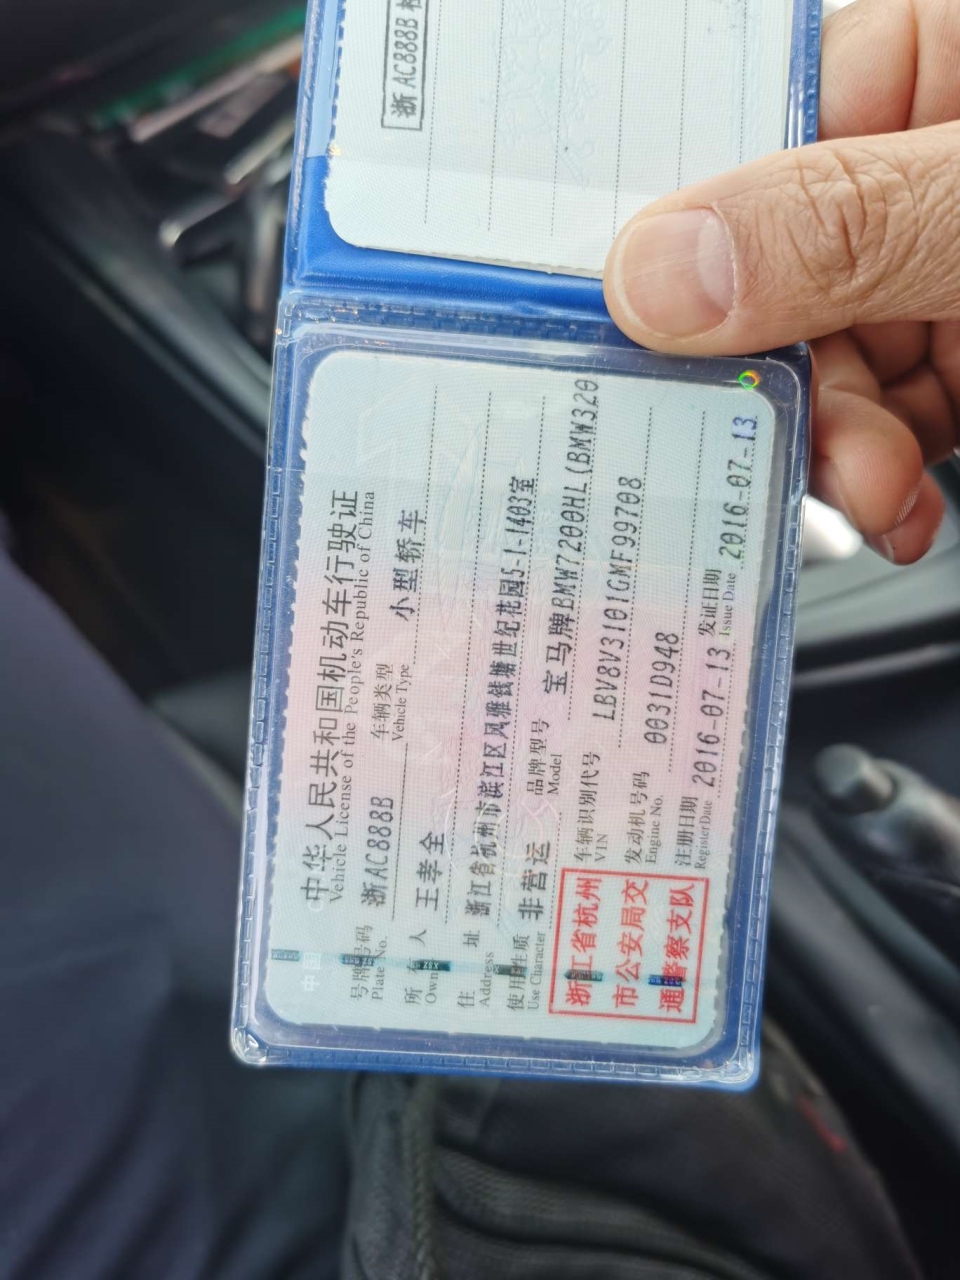 浙AC888B
中华人民共和国机动车行驶证
Vehicle License of the People's Republic of China
号牌号码 浙AC888B 车辆类型 小型轿车
Plate No. Vehicle Type
所有人 王孝全
Owner
住址 浙江省杭州市滨江区风雅钱塘世纪花园5-1-1403室
Address
使用性质 非营运 品牌型号 宝马牌BMW7200HL(BMW320
Use Character Model
浙江省杭州
市公安局交
通警察支队
车辆识别代号 LBV8V3101GMF99708
VIN
发动机号码 0031D948
Engine No.
注册日期 2016-07-13 发证日期 2016-07-13
Register Date Issue Date